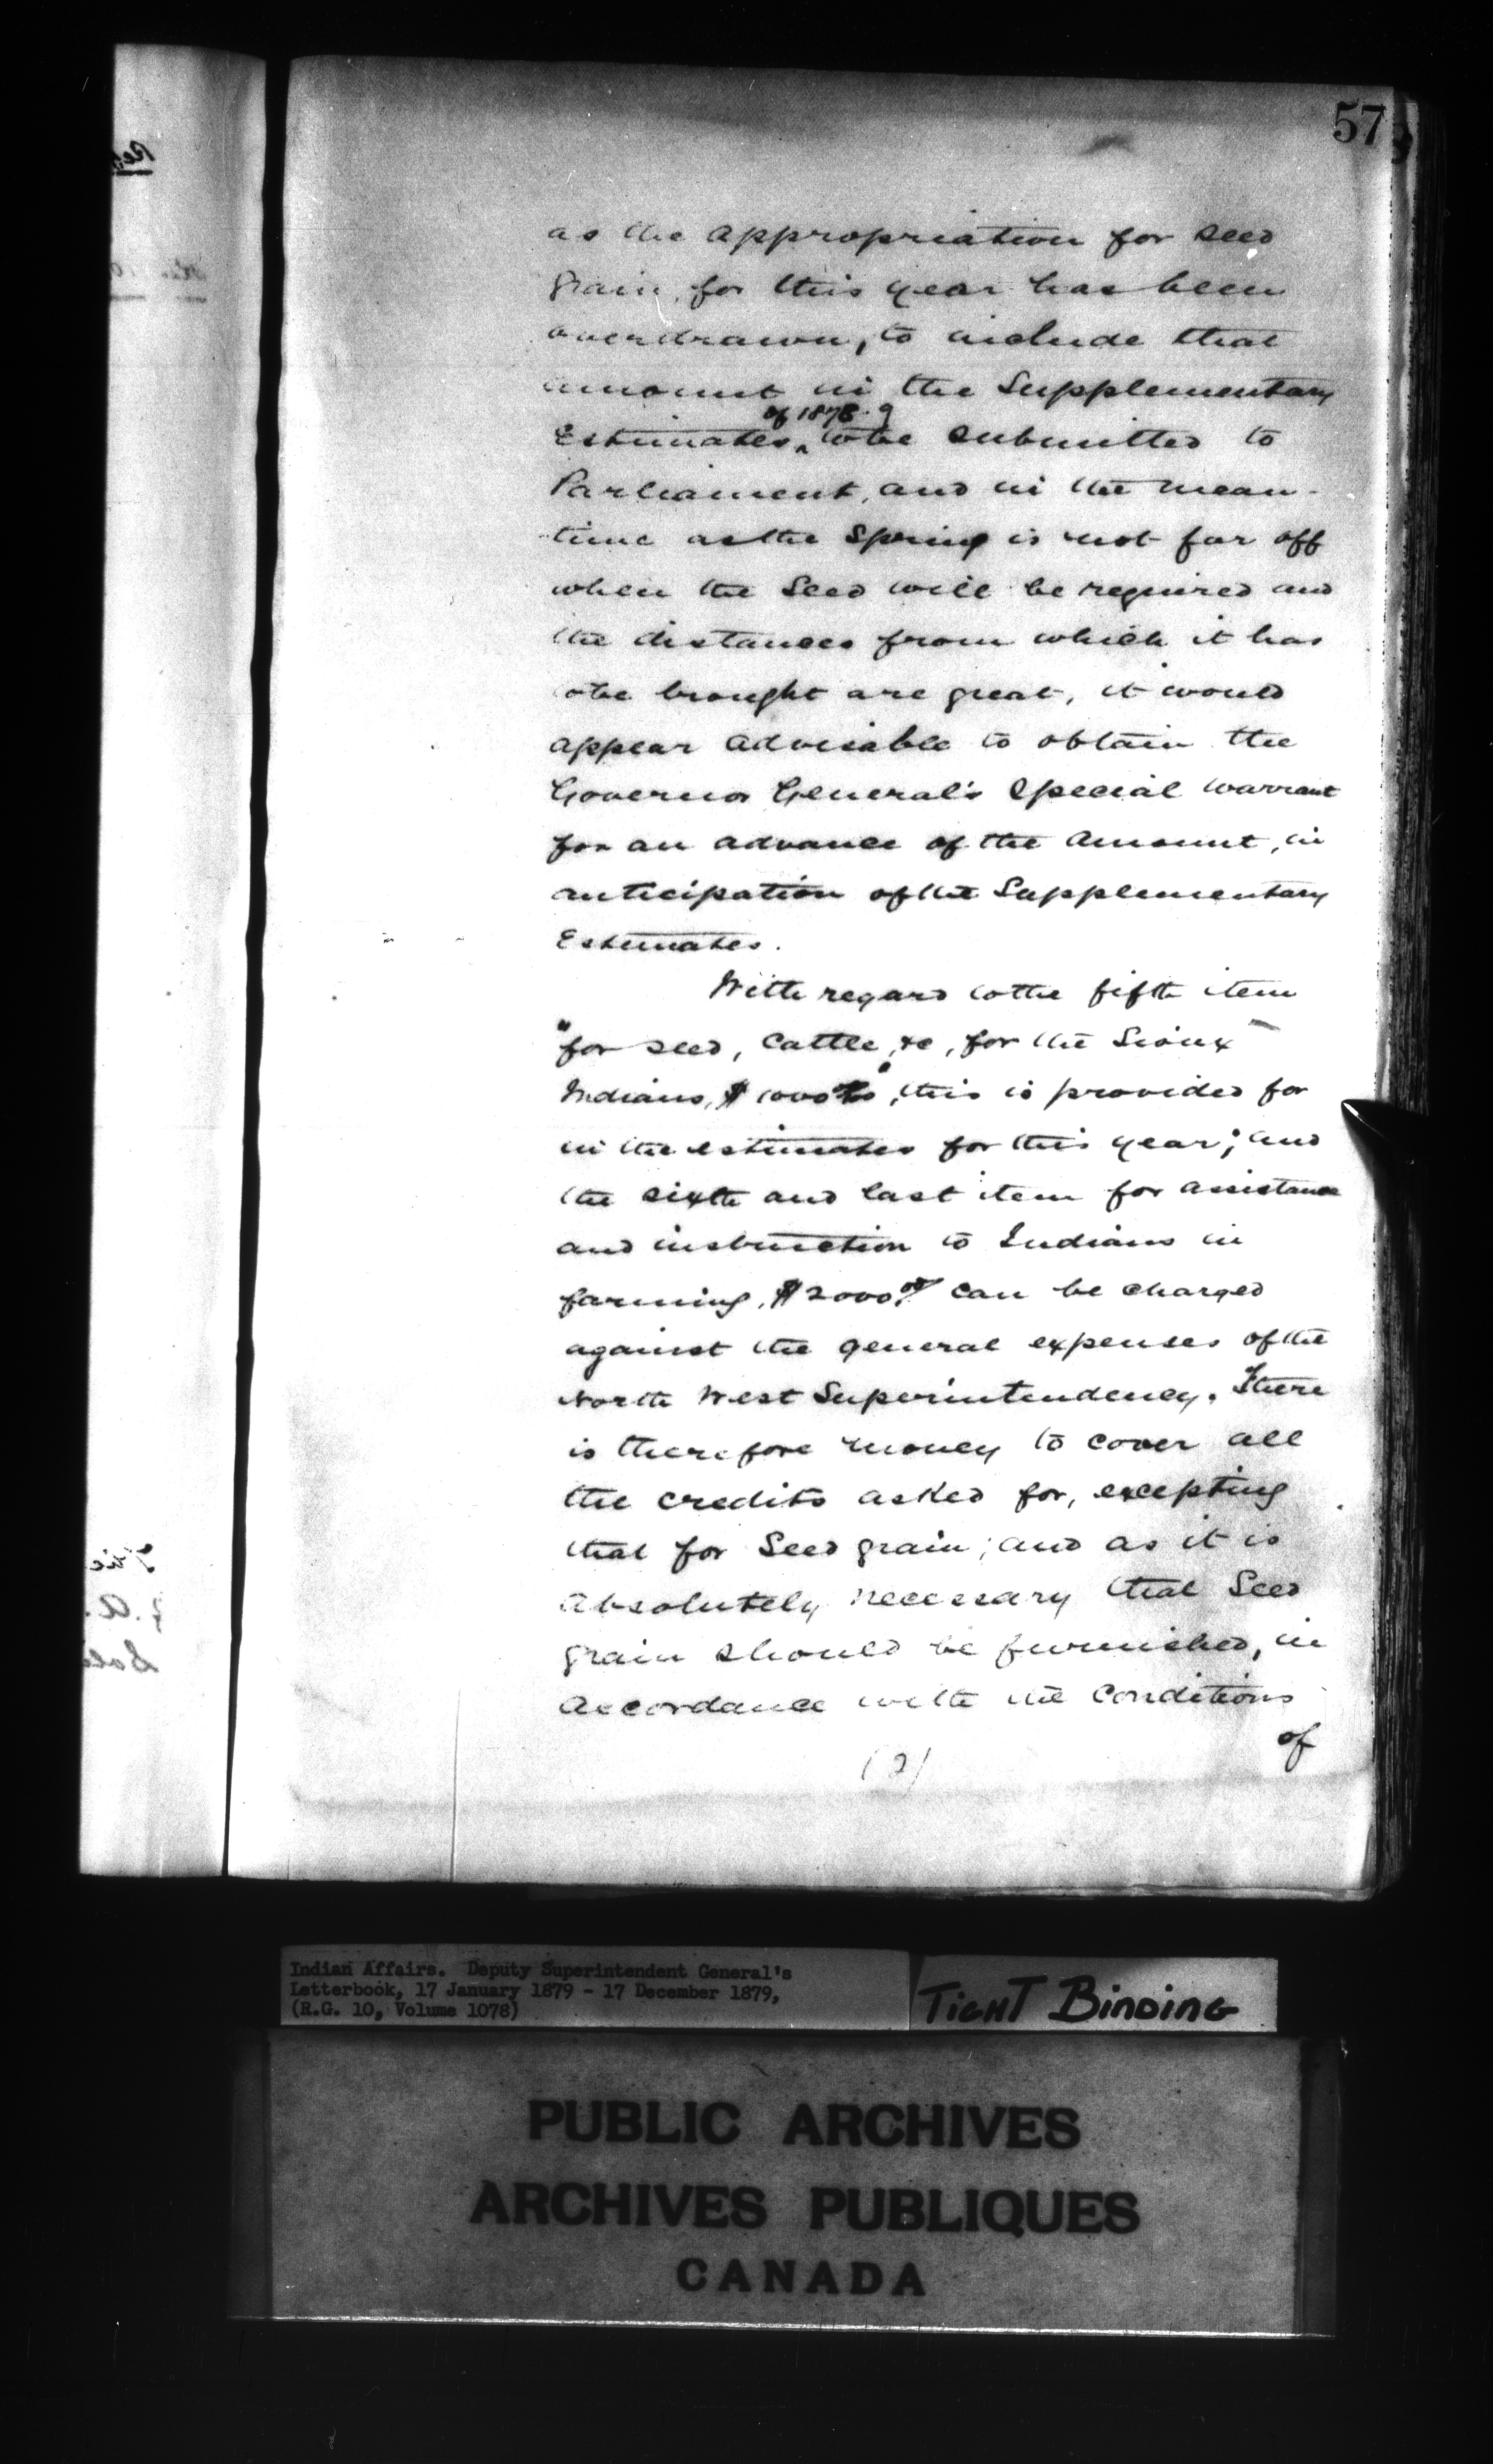 57
as the appropriation for seed
grain, for this year has been
overdrawn, to include that
amount in the Supplementary
of 1878-9
Estimates, to be submitted to
Parliament, and in the mean-
time as the Spring is not far off
when the Seed will be required and
the distances from which it has
to be brought are great, it would
appear advisable to obtain the
Governor General's Special Warrant
for an advance of the amount, in
anticipation of the Supplementary
Estimates.
With regard to the fifth item
"for seed, Cattle, &c, for the Sioux
Indians, $1000 00", this is provided for
in the estimates for this year; and
the sixth and last item for assistance
and instruction to Indians in
farming, $2000 00/ can be charged
against the general expenses of the
North West Superintendency. There
is therefore money to cover all
the credits asked for, excepting
that for Seed grain; and as it is
absolutely necessary that Seed
grain should be furnished, in
accordance with the Conditions
of
(2)
Indian Affairs. Deputy Superintendent General's
Letterbook, 17 January 1879 - 17 December 1879,
(R.G. 10, Volume 1078)
TIGHT BINDING
PUBLIC ARCHIVES
ARCHIVES PUBLIQUES
CANADA